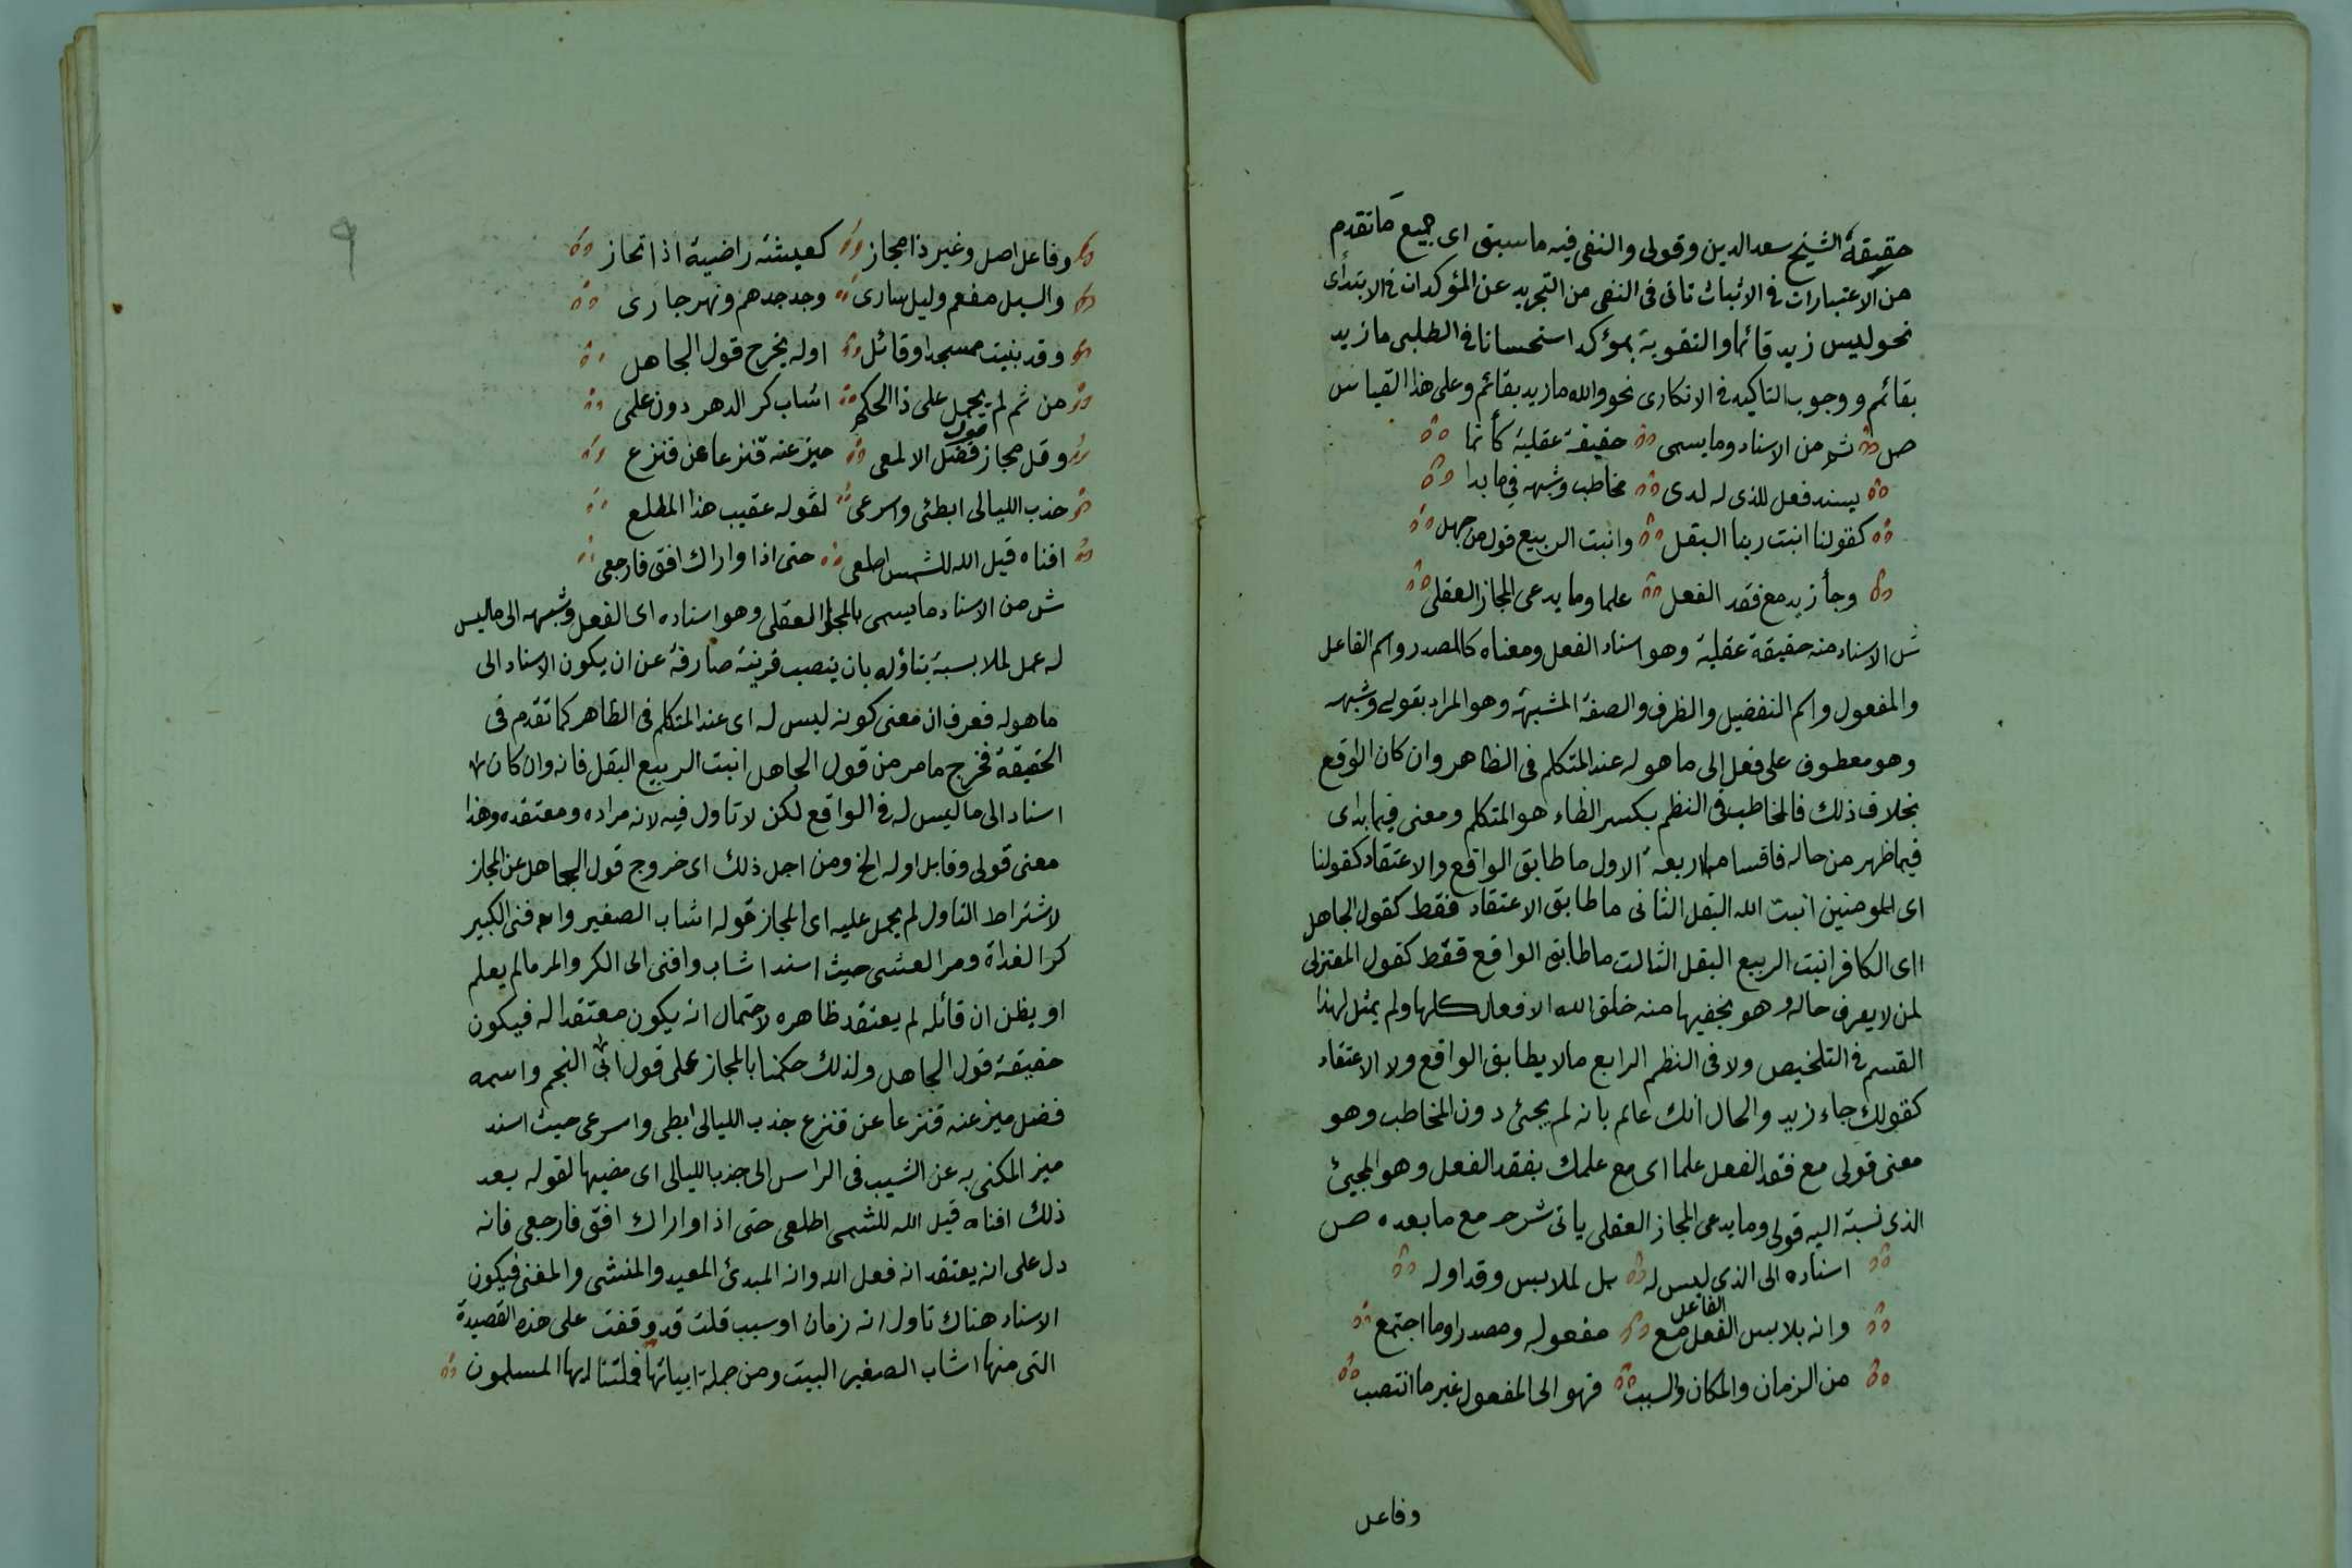 حقيقة الشيخ سعد الدين وقولى والنفى فيه ما سبق اى جميع ما تقدم
من الاعتبارات فى الاثبات تاتى فى النفى من التجريد عن المؤكدات فى الابتدأى
نحو ليس زيد قائما والتقوية بمؤكد استحسانا فى الطلبى ما زيد
بقائم ووجوب التاكيد فى الانكارى نحو والله ما زيد بقائم وعلى هذا القياس
ص ثم من الاسناد وما يسمى حقيقة عقلية كأنما
يسند فعل للذى له لدى مخاطب وشبهه فيما بدا
كقولنا انبت ربنا البقل وانبت الربيع قول من جهل
وجأ زيد مع فقد الفعل علما وما يدعى المجاز العقلى
ش الاسناد منه حقيقة عقلية وهو اسناد الفعل ومعناه كالمصدر واسم الفاعل
والمفعول واسم التفضيل والظرف والصفة المشبهة وهو المراد بقولى وشبهه
وهو معطوف على فعل الى ما هو له عند المتكلم فى الظاهر وان كان الواقع
بخلاف ذلك فالمخاطب فى النظم بكسر الطاء هو المتكلم ومعنى فيما بدا اى
فيما ظهر من حاله فاقسامها اربعة الاول ما طابق الواقع والاعتقاد كقولنا
اى المومنين انبت الله البقل الثانى ما طابق الاعتقاد فقط كقول الجاهل
اى الكافر انبت الربيع البقل الثالث ما طابق الواقع فقط كقول المعتزلى
لمن لا يعرف حاله وهو يخفيها منه خلق الله الافعال كلها ولم يمثل لهذا
القسم فى التلخيص ولا فى النظم الرابع ما لا يطابق الواقع ولا الاعتقاد
كقولك جاء زيد والحال انك عالم بانه لم يجئ دون المخاطب وهو
معنى قولى مع فقد الفعل علما اى مع علمك بفقد الفعل وهو المجيئ
الذى نسبة اليه قولى وما يدعى المجاز العقلى ياتى شرحه مع ما بعده ص
اسناده الى الذى ليس له بل لملابس وقد اوله
وانه يلابس الفعل مع الفاعل مفعوله ومصدرا وما اجتمع
من الزمان والمكان والسبب فهو الى المفعول غير ما انتصب
وفاعل
٩
وفاعل اصل وغير ذا مجاز كعيشة راضية اذا تحاز
والسيل مفعم وليل سارى وجد جدهم ونهر جارى
وقد بنيت مسجدا وقائل اوله يخرج قول الجاهل
من ثم لم يحمل على ذا الحكم اشاب كر الدهر دون علمى
وقل مجاز قول فضل الالمعى ميز عنه قنزعا عن قنزع
جذب الليالى ابطئى واسرعى لقوله عقيب هذا المطلع
افناه قيل الله للشمس اطلعى حتى اذا واراك افق فارجعى
ش من الاسناد ما يسمى بالمجاز العقلى وهو اسناده اى الفعل وشبهه الى ما ليس
له عمل لملابسة بتاوله بان ينصب قرينة صارفة عن ان يكون الاسناد الى
ما هو له فعرف ان معنى كونه ليس له اى عند المتكلم فى الظاهر كما تقدم فى
الحقيقة فخرج ما مر من قول الجاهل انبت الربيع البقل فانه وان كان
اسناد الى ما ليس له فى الواقع لكن لا تاول فيه لانه مراده ومعتقده وهذا
معنى قولى وقابل اوله الخ ومن اجل ذلك اى خروج قول الجاهل عن المجاز
لاشتراط التاول لم يحمل عليه اى المجاز قوله اشاب الصغير وافنى الكبير
كر الغداة ومر العشى حيث اسند اشاب وافنى الى الكر والمر ما لم يعلم
او يظن ان قائله لم يعتقد ظاهره لاحتمال انه يكون معتقدا له فيكون
حقيقة قول الجاهل ولذلك حكمنا بالمجاز على قول ابى النجم واسمه
فضل ميز عنه قنزعا عن قنزع جذب الليالى ابطى واسرعى حيث اسند
ميز المكنى به عن الشيب فى الراس الى جذب الليالى اى مضيها لقوله بعد
ذلك افناه قيل الله للشمس اطلعى حتى اذا واراك افق فارجعى فانه
دل على انه يعتقد انه فعل الله وانه المبدئ المعيد والمنشى والمفنى فيكون
الاسناد هناك تاول انه زمان او سبب قلت قد وقفت على هذه القصيدة
التى منها اشاب الصغير البيت ومن جملة ابياتها فملتنا ايها المسلمون